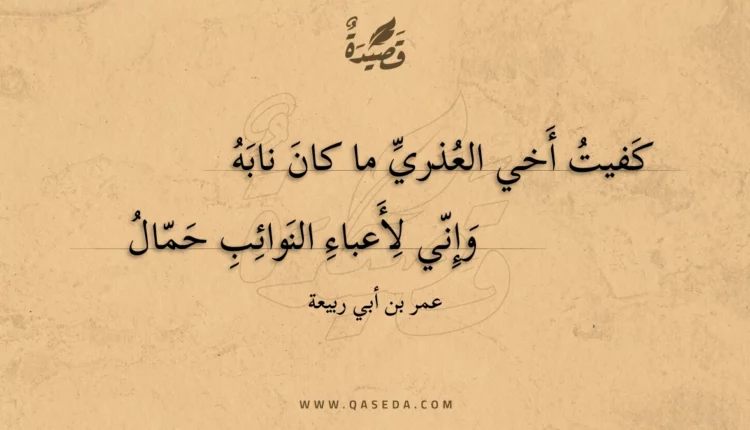 قَصِيْدَةٌ
كَفيتُ أَخي العُذريِّ ما كانَ نابَهُ
وَإِنّي لِأَعباءِ النَوائِبِ حَمّالُ
عمر بن أبي ربيعة
WWW.QASEDA.COM